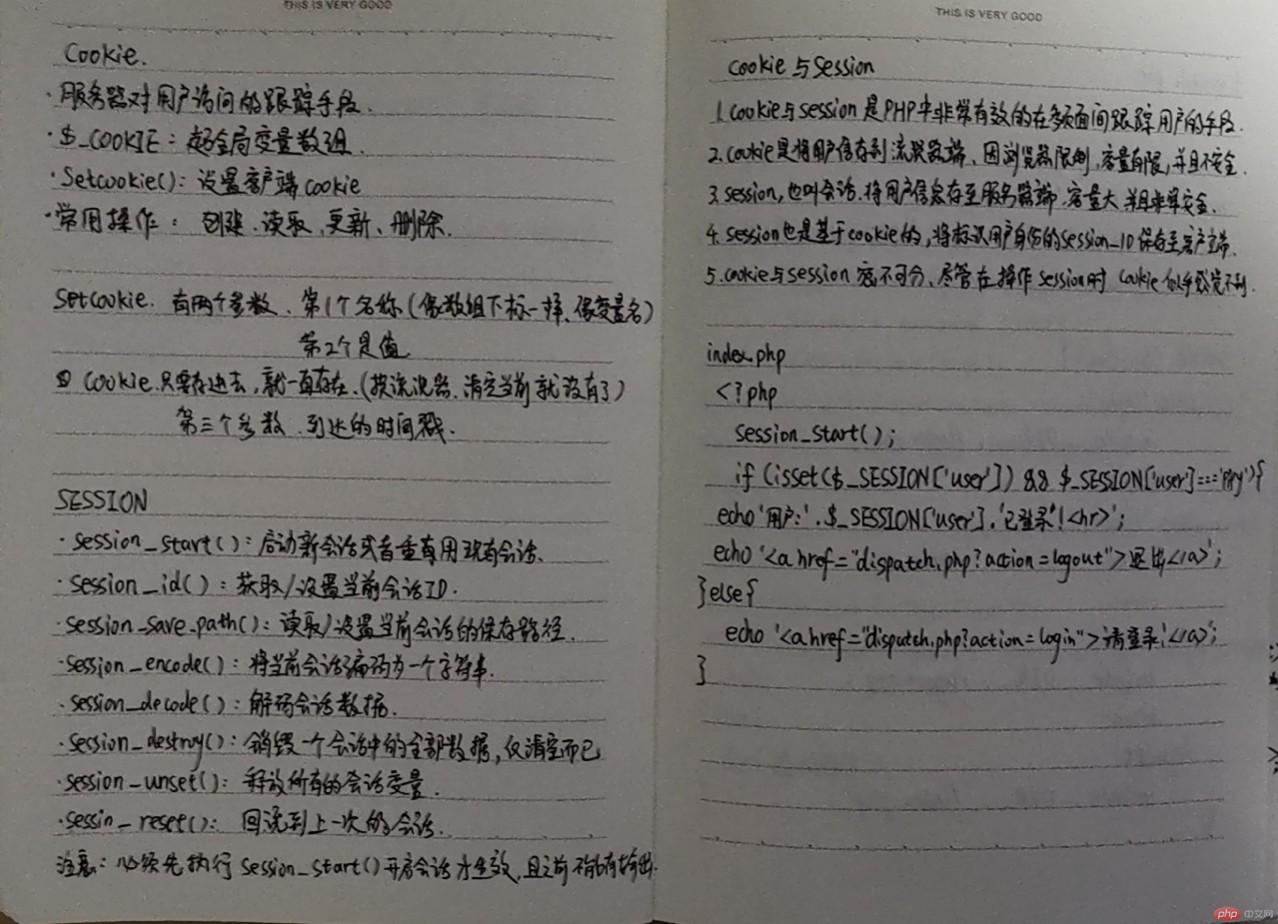 THIS IS VERY GOOD
Cookie.
·服务器对用户访问的跟踪手段.
·$_COOKIE：超全局变量数组.
·Setcookie()：设置客户端cookie
·常用操作：创建、读取、更新、删除.
Setcookie. 有两个参数、第1个名称(像数组下标一样、像变量名)
第2个是值
cookie.只要存进去,就一直存在.(换浏览器、清空当前就没有了)
第三个参数、到达的时间戳.
SESSION
·session_start()：启动新会话或者重用现有会话.
·session_id()：获取/设置当前会话ID.
·session_save_path()：读取/设置当前会话的保存路径.
·session_encode()：将当前会话编码为一个字符串.
·session_decode()：解码会话数据.
·session_destroy()：销毁一个会话中的全部数据,仅清空而已
·session_unset()：释放所有的会话变量.
·sessin_reset()： 回滚到上一次的会话.
注意：必须先执行session_start()开启会话才生效,且之前不能有输出.
THIS IS VERY GOOD
cookie与session
1.cookie与session是PHP中非常有效的在多页面间跟踪用户的手段.
2.cookie是将用户信存到浏览器端、因浏览器限制,容量有限,并且不安全.
3.session,也叫会话.将用户信息存至服务器端.容量大并且非常安全.
4.session也是基于cookie的,将标识用户身份的session_ID保存至客户端.
5.cookie与session密不可分、尽管在操作session时 cookie似乎感觉不到.
index.php
<?php
session_start();
if (isset($_SESSION['user']) && $_SESSION['user']===''){
echo '用户:'.$_SESSION['user'].'已登录'!<hr>';
echo '<a href="dispatch.php?action=logout">退出</a>';
}else{
echo '<a href="dispatch.php?action=login">请登录!</a>';
}
php 中文网